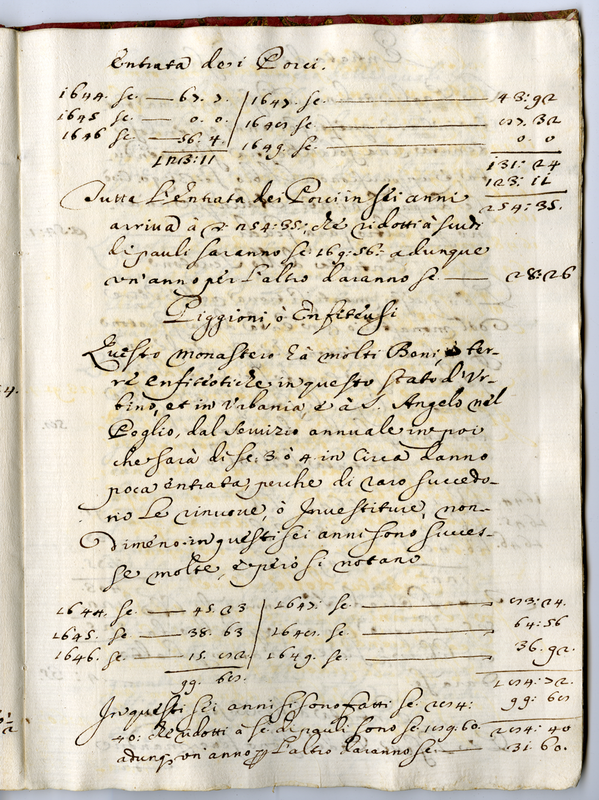 Entrata dei Porci.
1644. sc. — 67. 7. 1647. sc. — 43:92
1645 sc. — 0. 0. 1648 sc. — 87. 32
1646 sc — 56. 4. 1649. sc. — 0 0
123:11 131: 24
123: 11
Tutta L'Entrata dei Porci in sei anni 254: 35.
arriva à 254:35; che ridotti à scudi
di pauli saranno sc: 169:56: adunque
un'anno per l'altro daranno sc — 28:26
Piggioni, ò Enfiteusi
Questo monastero hà molti Boni, ò ter-
re enfiteotiche in questo stato d'Ur-
bino, et in Urbania, e à S. Angelo nel
Poglio, dal servizio annuale in poi
che sarà di sc: 3 ò 4 in circa danno
poca entrata, perche di raro succedo-
no Le rinuove, ò Investiture, non-
dimeno in questi sei anni sono succes-
se molte, e però si notano
1644. sc. — 45 23 1647: sc — 83:24.
1645. sc — 38. 63 1648. sc — 64:56
1646. sc — 15. 82 1649. sc — 36. 92.
99. 68. 184:72.
In questi sei anni si sono fatti sc. 284: 99: 68
40: che ridotti à sc. di pauli sono sc 189.60. 284: 40
adunq. un'anno p l'altro daranno sc — 31. 60.